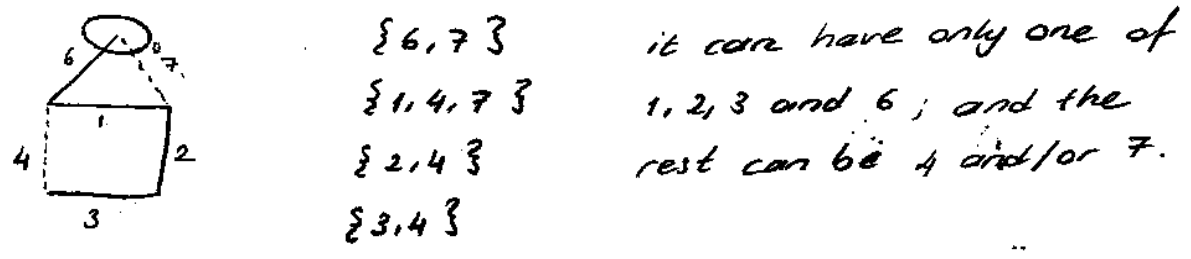 6
7
1
4
2
3
{6,7}
{1,4,7}
{2,4}
{3,4}
it can have only one of
1, 2, 3 and 6 ; and the
rest can be 4 and/or 7.